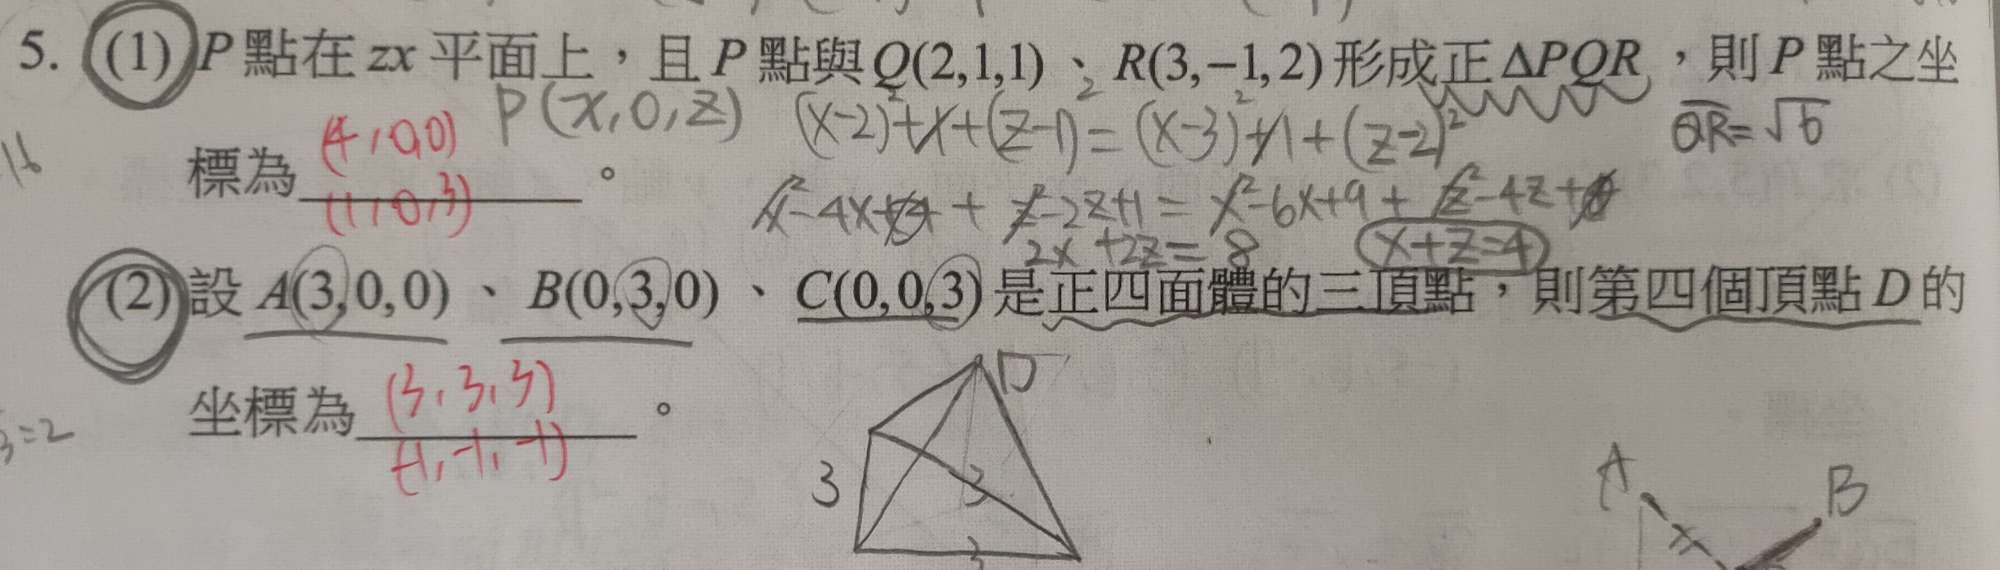 5. (1) P 點在 zx 平面上，且 P 點與 Q(2,1,1)、R(3,−1,2) 形成正 ΔPQR，則 P 點之坐
P(x,0,z) (x-2)²+1+(z-1)²=(x-3)²+1+(z-2)² QR=√6
標為 (4,0,0) 。
(1,0,3)
x²-4x+4+z²-2z+1=x²-6x+9+z²-4z+4
2x+2z=8 x+z=4
(2) 設 A(3,0,0)、B(0,3,0)、C(0,0,3) 是正四面體的三頂點，則第四個頂點 D 的
坐標為 (3,3,3) 。
(-1,-1,-1)
3=2
D
3 3
3
A B
x